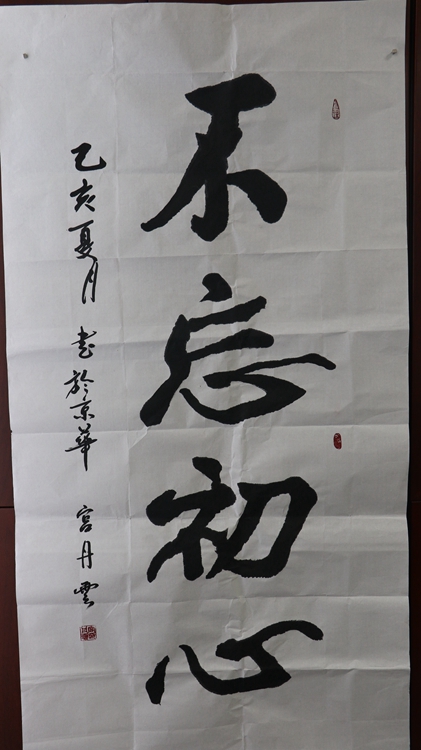 不忘初心
乙亥夏月 书於京华 宫丹雲